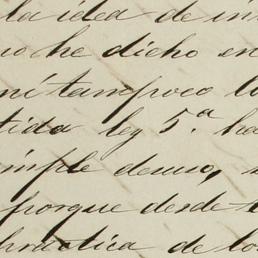 la idea de in
no he dicho en
ni tampoco lo
tida ley 5.ª ha
imple deuso, 
porque desde
hmotica de lo